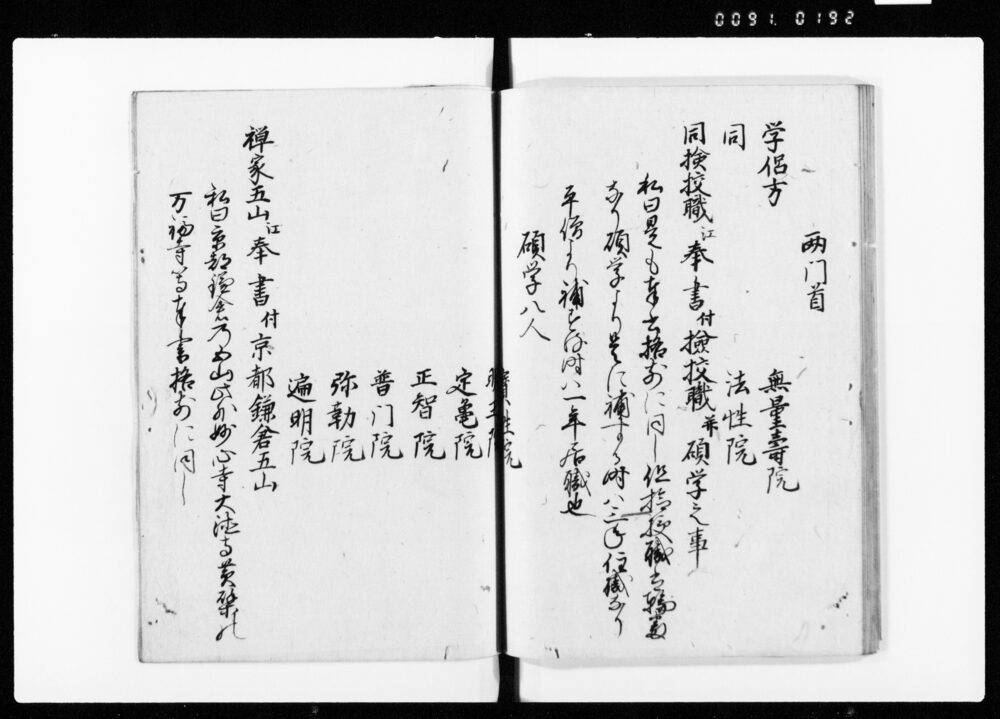 0091.0192
両门首
学侶方 無量壽院
同 法性院
同検挍職江奉書付撿挍職并碩学之事
私曰是も奉書格前ニ同し但撿挍職者輪番
なり碩学より是に補する時ハ三年住職なり
平僧より補する時ハ一年居職也
碩学八人
寳性院
定亀院
正智院
普门院
弥勒院
遍明院
禅家五山江奉書付京都鎌倉五山
私曰京都鎌倉乃五山此外妙心寺大徳寺黄檗の
万福寺等奉書格前ニ同し